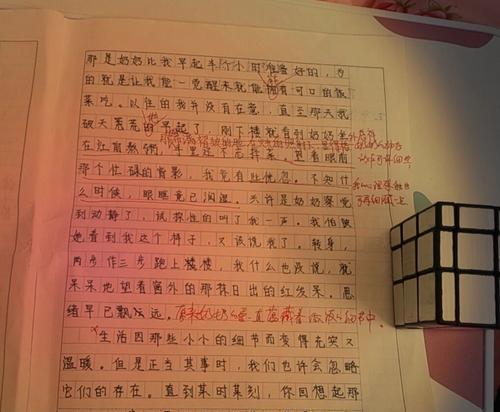 那是奶奶比我早起半个小时准备好的，为
的就是让我能一觉醒来就能拥有可口的饭
菜吃。以往的我并没有在意，直至那天我
破天荒荒的早起了，刚下楼就看到奶奶坐
在灶前热锅，手里还不忘择菜。望着眼前
那个忙碌的背影，我竟有些恍忽。不知什
么时候，眼眶竟已湿温。兴许是奶奶察觉
到动静了，试探性的叫了我一声。我怕被
她看到我这个样子，又该说我了。转身，
两步作三步跑上楼楼，我什么也没说，就
呆呆地望着窗外的那抹日出的红发呆。思
绪早已飘汝远。原来奶奶的爱一直蕴藏在
生活因那些小小的细节而变得充实又
温暖。但是正当其事时，我们也许会忽略
它们的存在。直到某时某刻，你回想起那